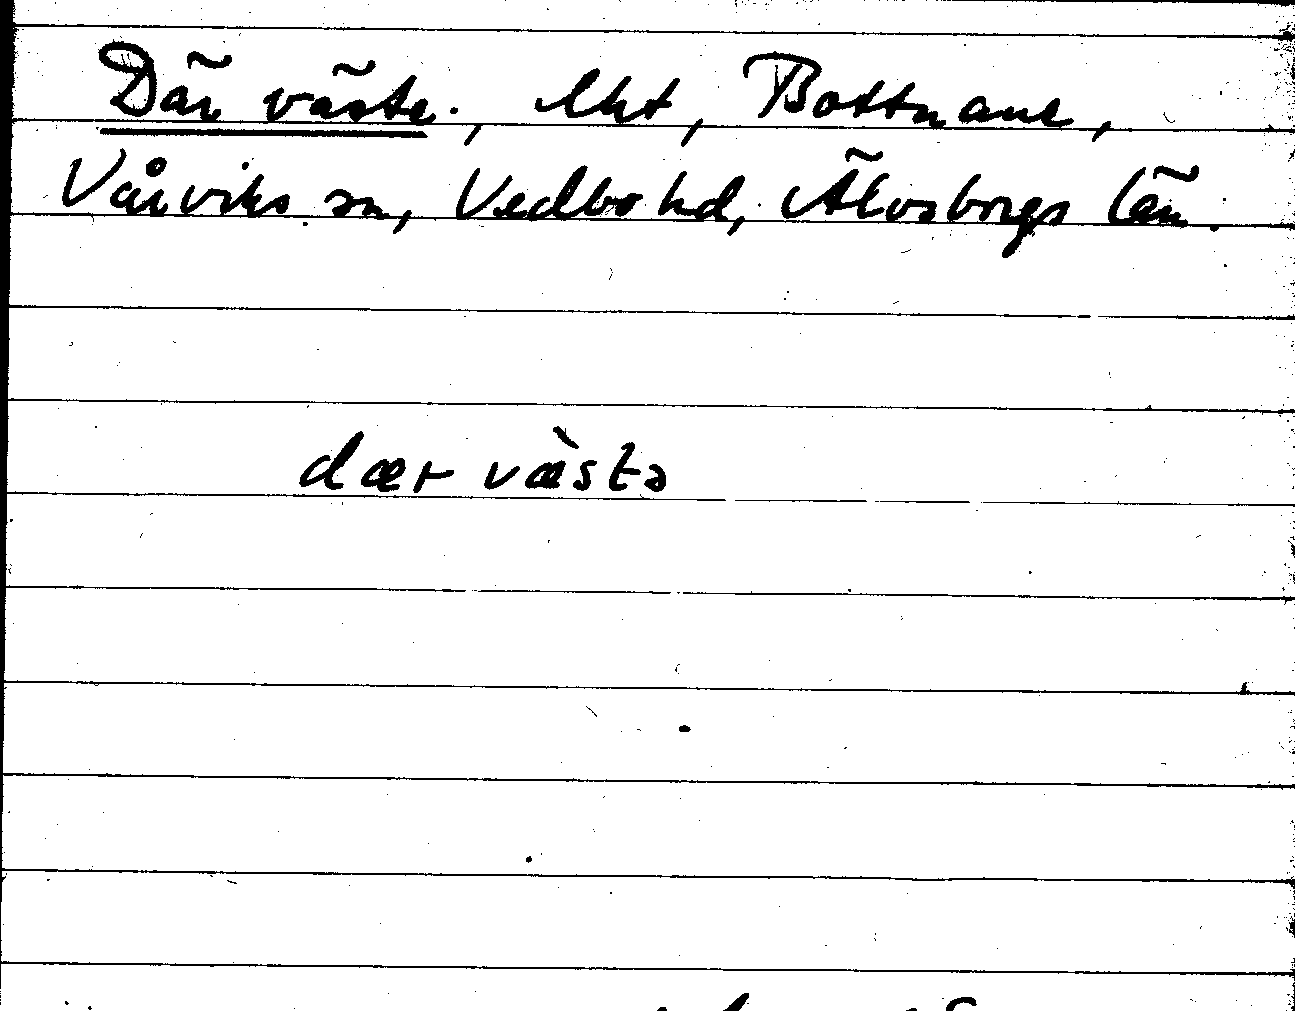 Där väste., lht, Bottnane,
Vårviks sn, Vedbo hd, Älvsborgs län.
dær væ̀stə